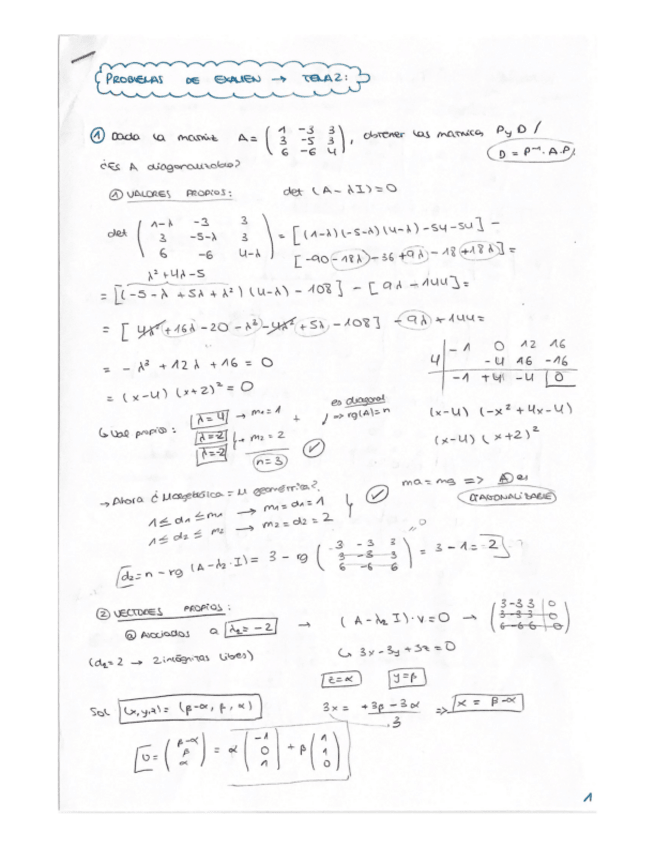 PROBLEMAS DE EXAMEN → TEMA 2:
① Dada la matriz A = ( 1 -3 3 / 3 -5 3 / 6 -6 4 ), obtener las matrices P y D /
D = P⁻¹·A·P
¿Es A diagonalizable?
① VALORES PROPIOS: det (A - λI) = 0
det ( 1-λ -3 3 / 3 -5-λ 3 / 6 -6 4-λ ) = [(1-λ)(-5-λ)(4-λ) -54 -54] -
[-90 -18λ -36 +9λ -18 +18λ] =
λ² + 4λ - 5
= [(-5 - λ + 5λ + λ²)(4-λ) - 108] - [9λ - 144] =
= [4λ² + 16λ - 20 - λ³ - 4λ² + 5λ - 108] - 9λ + 144 =
= -λ³ + 12λ + 16 = 0
= (x-4)(x+2)² = 0
-1 0 12 16
4 -4 16 -16
-1 +4 -4 0
(x-4)(-x² + 4x - 4)
(x-4)(x+2)²
↳ Val propios: λ = 4 → m₁ = 1
λ = -2
λ = -2 → m₂ = 2
n = 3
es diagonal
⇒ rg(A) = n
→ Ahora ¿M algebráica = M geométrica?
1 ≤ d₁ ≤ m₁ → m₁ = d₁ = 1
1 ≤ d₂ ≤ m₂ → m₂ = d₂ = 2
ma = mg ⇒ A es
DIAGONALIZABLE
d₂ = n - rg (A - λ₂·I) = 3 - rg ( 3 -3 3 / 3 -3 3 / 6 -6 6 ) = 3 - 1 = 2
② VECTORES PROPIOS:
ⓐ Asociados a λ₂ = -2 → (A - λ₂I)·v = 0 → ( 3 -3 3 | 0 / 3 -3 3 | 0 / 6 -6 6 | 0 )
(d₂ = 2 → 2 incógnitas libres)
↳ 3x - 3y + 3z = 0
z = α y = β
Sol (x,y,z) = (β-α, β, α)
3x = +3β - 3α / 3 ⇒ x = β-α
v = ( β-α / β / α ) = α ( -1 / 0 / 1 ) + β ( 1 / 1 / 0 )
1